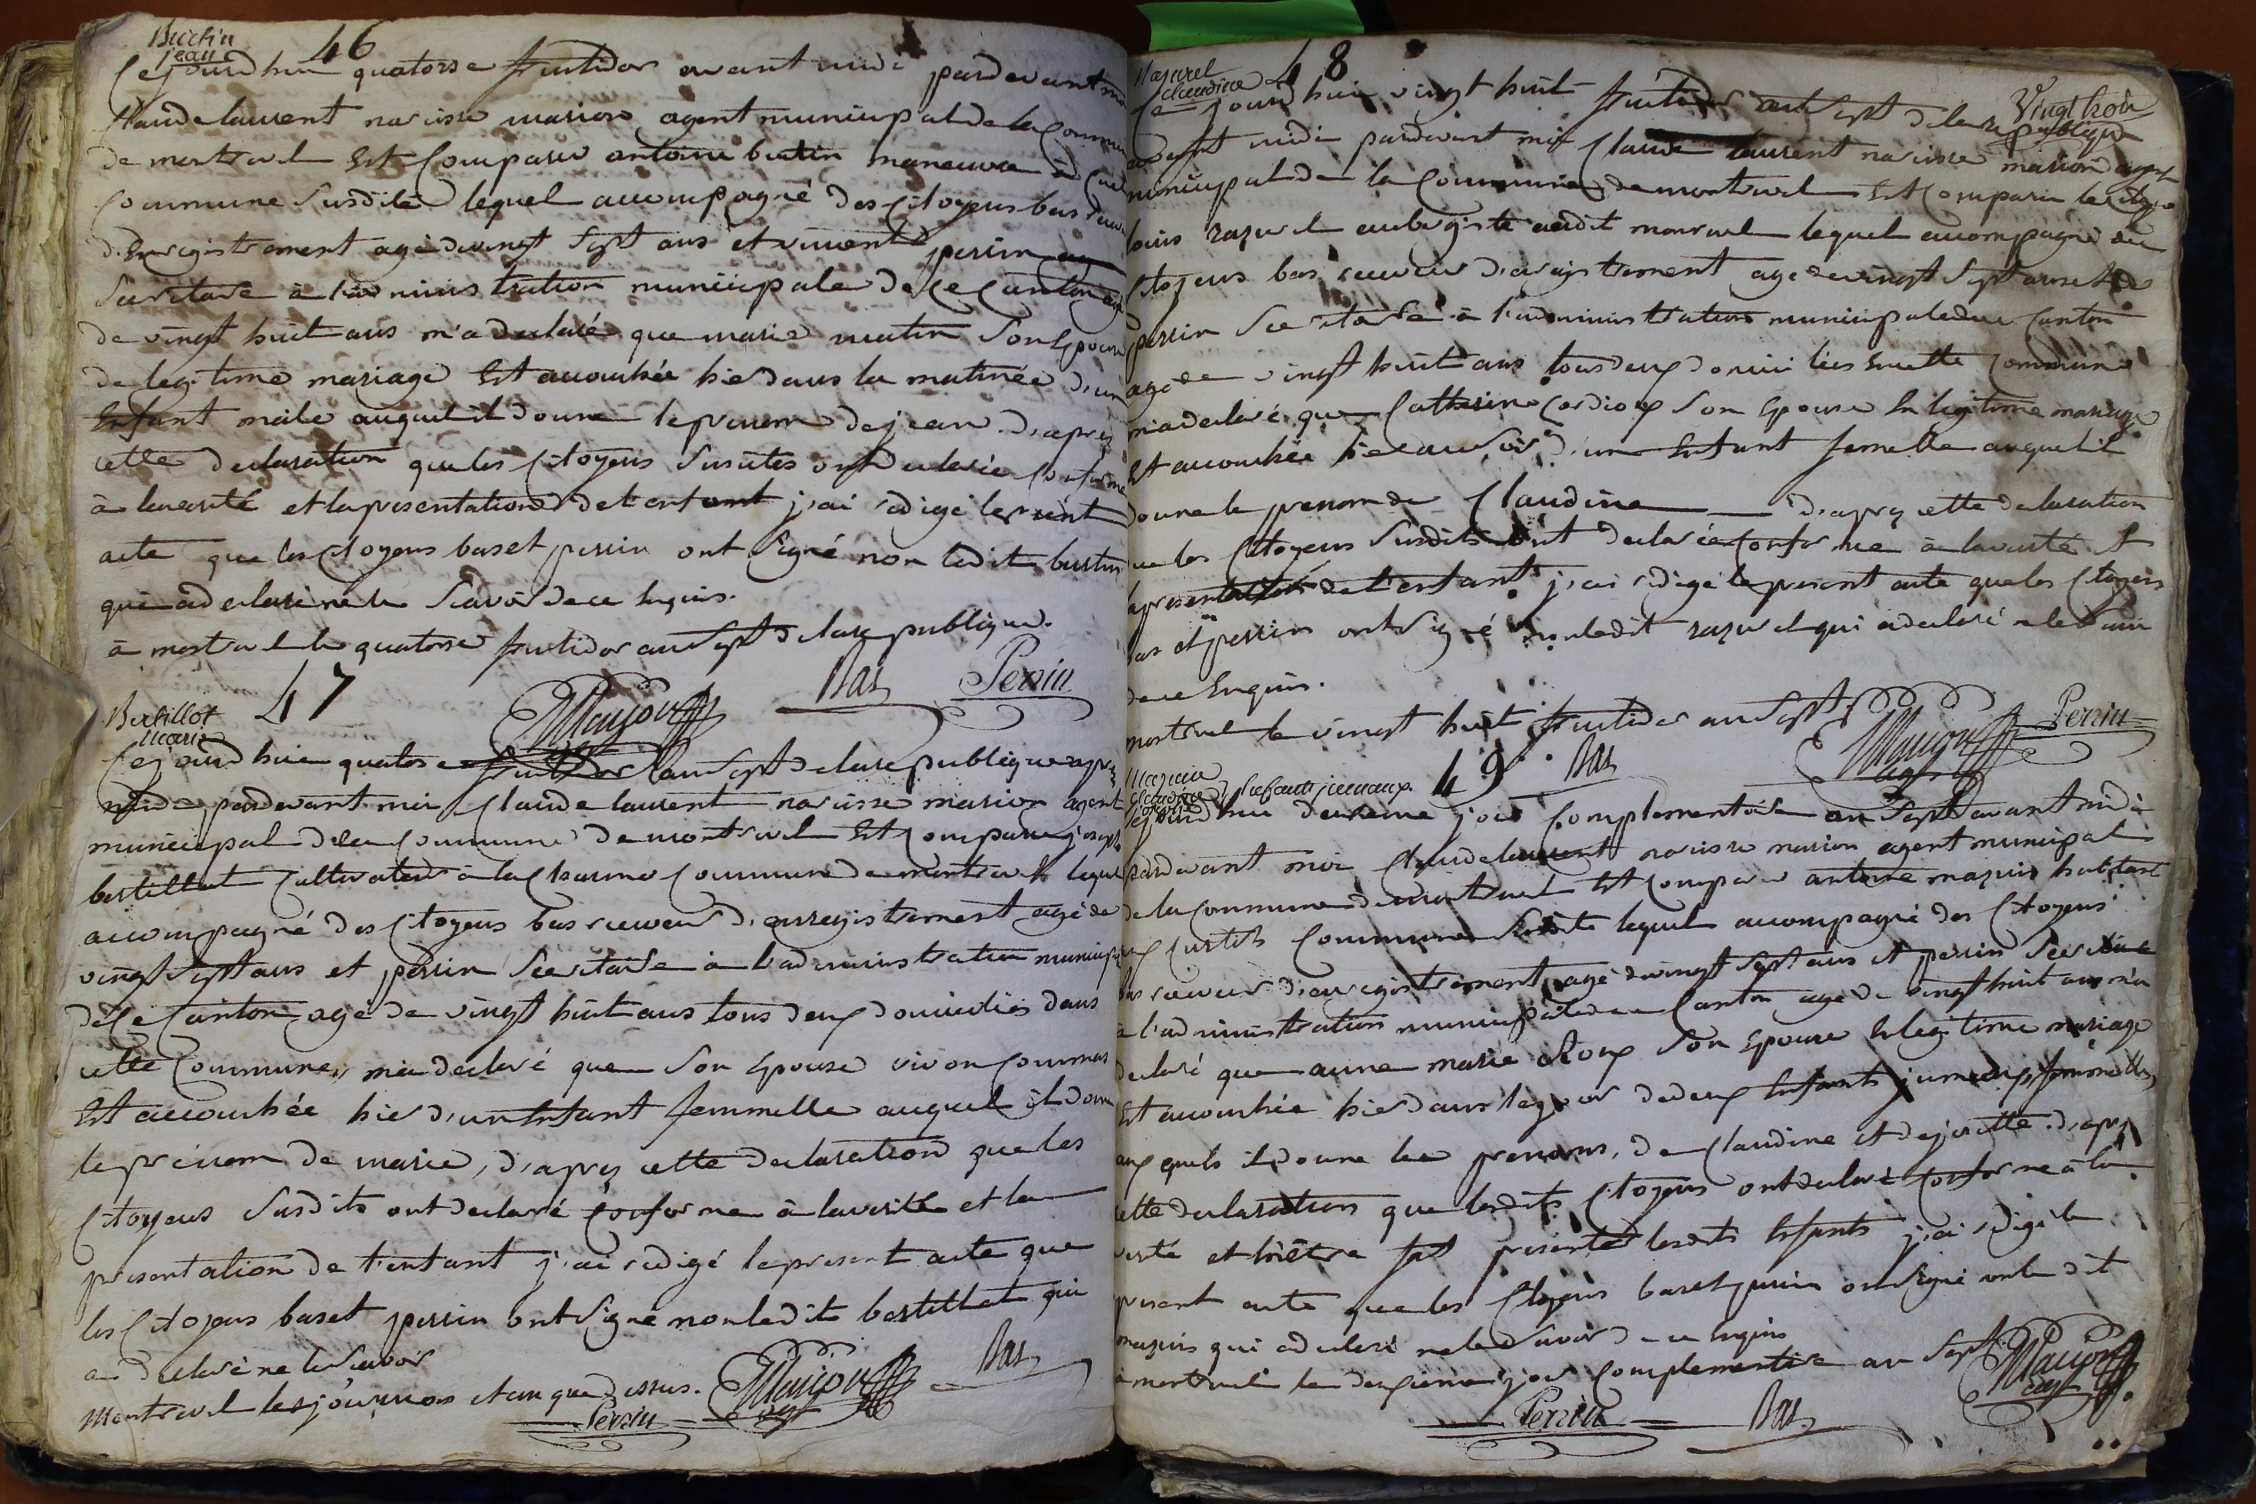 Burtin
jean
46
Cejourd'hui quatorse fructidor avant midi pardevant moi
Claude laurent narcisse marion agent municipal de la Commune
de montrevel Est Comparu antoine burtin maneuvre à
Commune Susdite lequel accompagné des Citoyens bas
d'Enregistrement agé de vingt Sept ans et vincent perrin
Secretaire à l'administration municipale de Ce Canton agé
de vingt huit ans m'a declaré que marie matin Son Epouse
de legitime mariage Est accouchée hier dans la matinée d'un
Enfant male auquel il donne le prenom de jean. D'après
cette declaration que les Citoyens Susdites ont declarée Conforme
à la verité et la presentation de l'enfant j'ai redigé le present
acte que les Citoyens bas et perrin ont Signé non ledit burtin
qui a declaré ne le Scavoir de ce Enquis.
à montrevel le quatorse fructidor an Sept de la republique.
Bas Perrin
Marion
47
Bertillot
Marie
Cejourd'hui quatorse fructidor l'an Sept de la republique après
midi pardevant moi Claude laurent narcisse marion agent
municipal de la Commune de montrevel Est Comparu joseph
bertillot Cultivateur à la Charme Commune de montrevel lequel
accompagné des Citoyens bas receveur d'enregistrement agé de
vingt Sept ans et perrin Secretaire à l'administration municipale
de Ce Canton agé de vingt huit ans tous deux domiciliés dans
cette Commune, m'a declaré que Son Epouse
Est accouchée hier d'un Enfant femmelle auquel il donne
le prenom de marie, d'après cette declaration que les
Citoyens Susdits ont declaré Conforme à la verité et la
presentation de l'enfant j'ai redigé le present acte que
les Citoyens bas et perrin ont Signé non ledit bertillot qui
a declaré ne le Scavoir
Montrevel les jour mois et an que dessus. Marion Bas
Perrin agt
48
Razurel
Claudine
Vingt huit
Cejourd'hui vingt huit fructidor an Sept de la republique
avant midi pardevant moi Claude laurent narcisse marion agent
municipal de la Commune de montrevel Est Comparu le Citoyen
louis razurel aubergiste audit montrevel lequel accompagné des
Citoyens bas receveur d'enregistrement agé de vingt Sept ans et de
perrin Secretaire à l'administration municipale du Canton
agé de vingt huit ans tous deux domiciliés en cette Commune
m'a declaré que Catherine Cordioux Son Epouse En legitime mariage
Est accouchée hier au Soir d'un Enfant femelle auquel il
donne le prenom de Claudine d'après cette declaration
que les Citoyens Susdits ont declarée Conforme à la verité et
la presentation de l'enfant j'ai redigé le present acte que les Citoyens
bas et perrin ont Signé non ledit razurel qui a declaré ne le Scavoir
de ce Enquis.
montrevel le vingt huit fructidor an Sept
Bas Marion agt Perrin
49
Mazuir
Claudine
Enfants jumeaux.
Cejourd'hui deuxieme jour Complementaire an Sept avant midi
pardevant moi Claude laurent narcisse marion agent municipal
de la Commune de montrevel Est Comparu antoine mazuir habitant
aux Curtils Commune Susdite lequel accompagné des Citoyens
bas receveur d'enregistrement agé de vingt Sept ans et perrin Secretaire
à l'administration municipale du Canton agé de vingt huit ans m'a
declaré que anne marie Son Epouse En legitime mariage
Est accouchée hier dans le jour de deux Enfants jumeaux femmelles
aux quels il donne les prenoms, de Claudine et de josette. d'après
cette declaration que lesdits Citoyens ont declaré Conforme à la
verité et m'être fait presenter lesdits Enfants j'ai redigé le
present acte que les Citoyens bas et perrin ont Signé non le dit
mazuir qui a declaré ne le Scavoir de ce Enquis
à montrevel le deuxieme jour Complementaire an Sept. Marion
agt
Perrin Bas